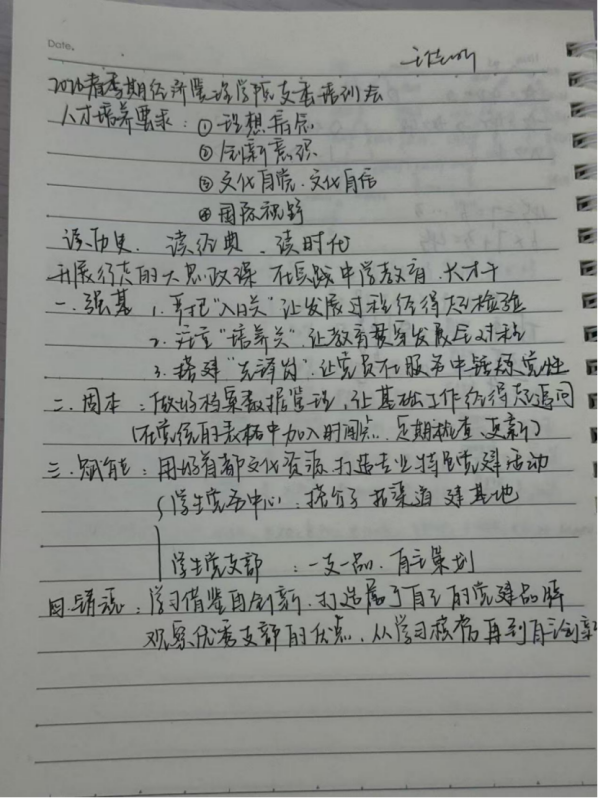 Date.
春季期经济管理学院支委培训会
人才培养要求：①理想信念
②创新意识
③文化自觉、文化自信
④国际视野
读历史、读经典、读时代
开展行走的大思政课 在实践中学教育、长才干
一、强基 1.严把“入口关”让发展过程经得起检验
2.注重“培养关”，让教育贯穿发展全过程
3.搭建“先锋岗”，让党员在服务中锤炼党性
二、固本：做好档案数据管理，让基础工作经得起追问
（在党统的表格中加入时间点，定期检查、更新）
三、赋能：用好首都文化资源，打造专业特色党建活动
学生党务中心：搭台子 拓渠道 建基地
学生党支部：一支一品、自主策划
四、铸魂：学习借鉴自创新，打造属于自己的党建品牌
观察优秀支部的优点，从学习模仿再到自主创新